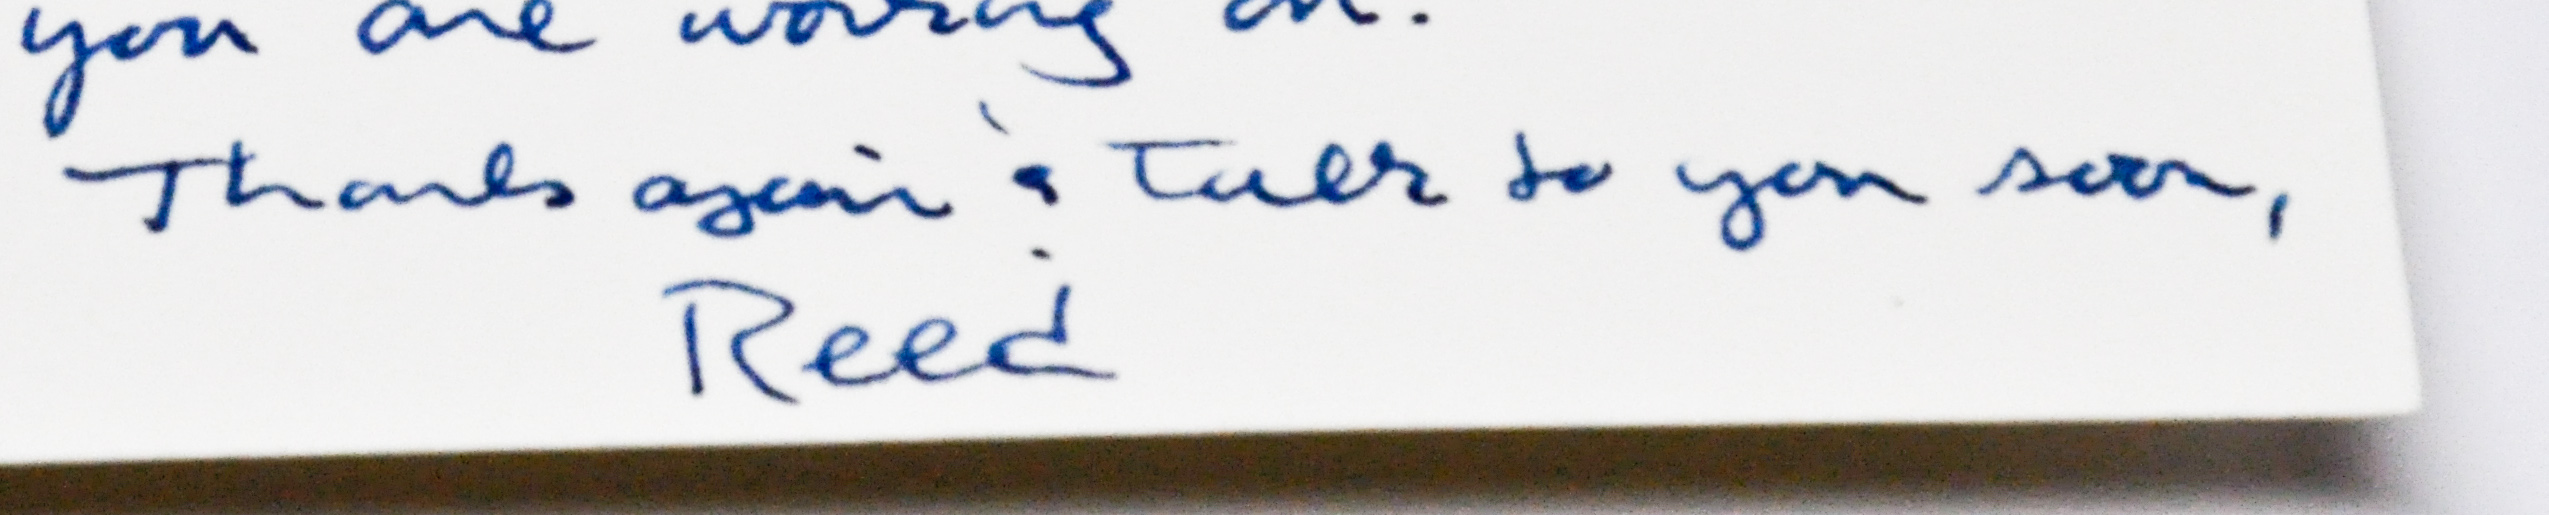 you are working on.
Thanks again & Talk to you soon,
Reed